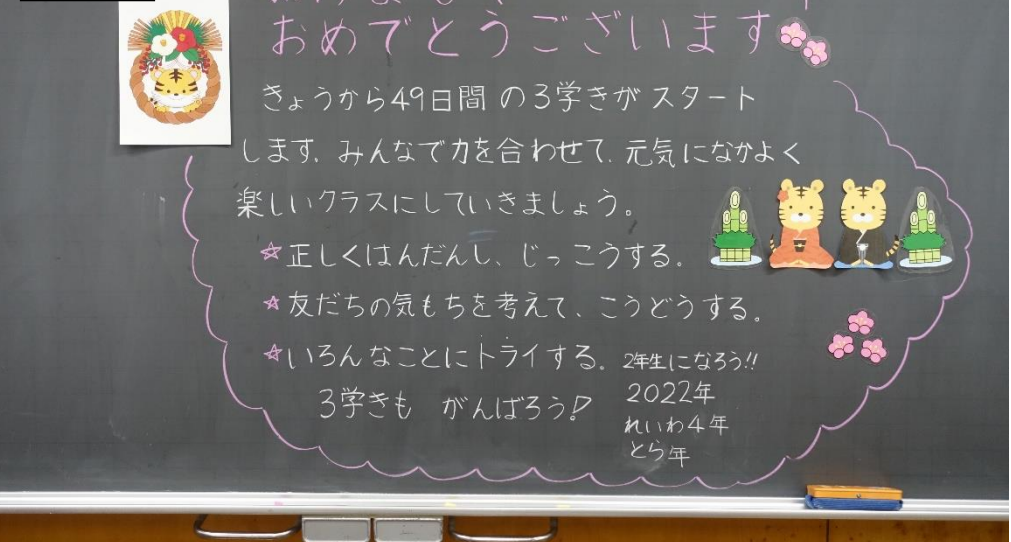 おめでとうございます
きょうから49日間の3学きがスタート
します。みんなで力を合わせて、元気になかよく
楽しいクラスにしていきましょう。
☆正しくはんだんし、じっこうする。
☆友だちの気もちを考えて、こうどうする。
☆いろんなことにトライする。
3学きも がんばろう!
2年生になろう!!
2022年
れいわ4年
とら年